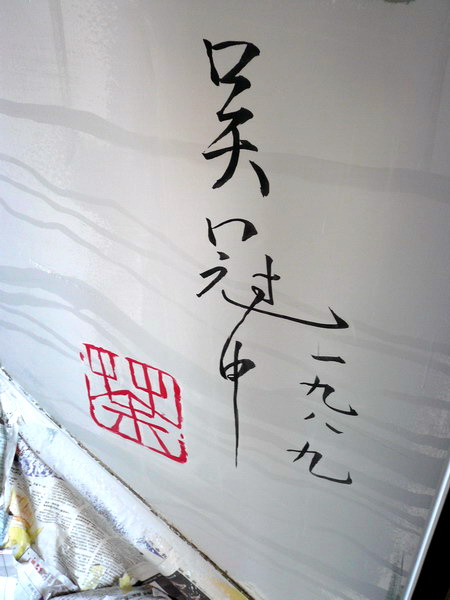 吴冠中
一九八九